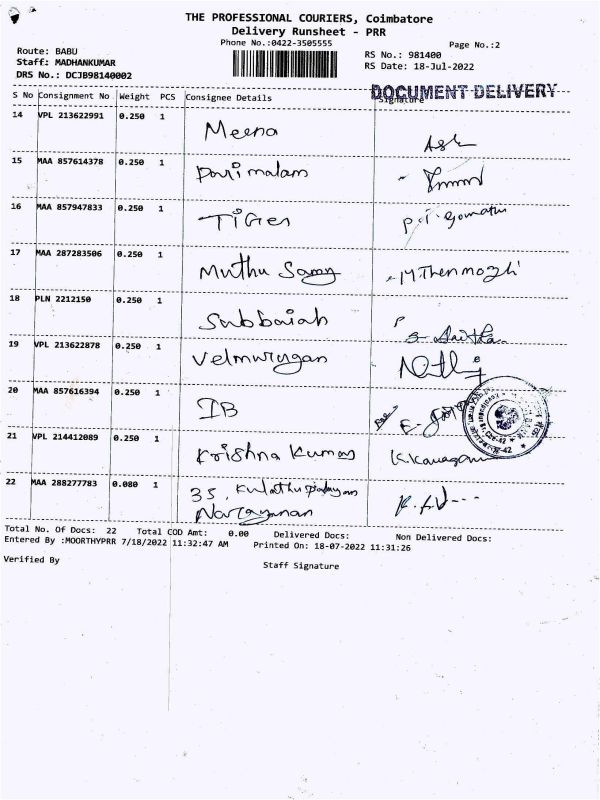 THE PROFESSIONAL COURIERS, Coimbatore
Delivery Runsheet - PRR
Phone No.:0422-3505555
Page No.:2
Route: BABU
RS No.: 981400
Staff: MADHANKUMAR
RS Date: 18-Jul-2022
DRS No.: DCJB98140002
DOCUMENT DELIVERY
S No Consignment No Weight PCS Consignee Details Signature
14 VPL 213622991 0.250 1 Meena
15 MAA 857614378 0.250 1 Parimalam
16 MAA 857947833 0.250 1 TIGer P.T. Gomathi
17 MAA 287283506 0.250 1 Muthu Samy M Thenmozhi
18 PLN 2212150 0.250 1 Subbaiah
19 VPL 213622878 0.250 1 Velmurugan
20 MAA 857616394 0.250 1 IB
21 VPL 214412089 0.250 1 Krishna Kumar
22 MAA 288277783 0.080 1 35,
Narayanan
Total No. Of Docs: 22 Total COD Amt: 0.00 Delivered Docs: Non Delivered Docs:
Entered By :MOORTHYPRR 7/18/2022 11:32:47 AM Printed On: 18-07-2022 11:31:26
Verified By Staff Signature